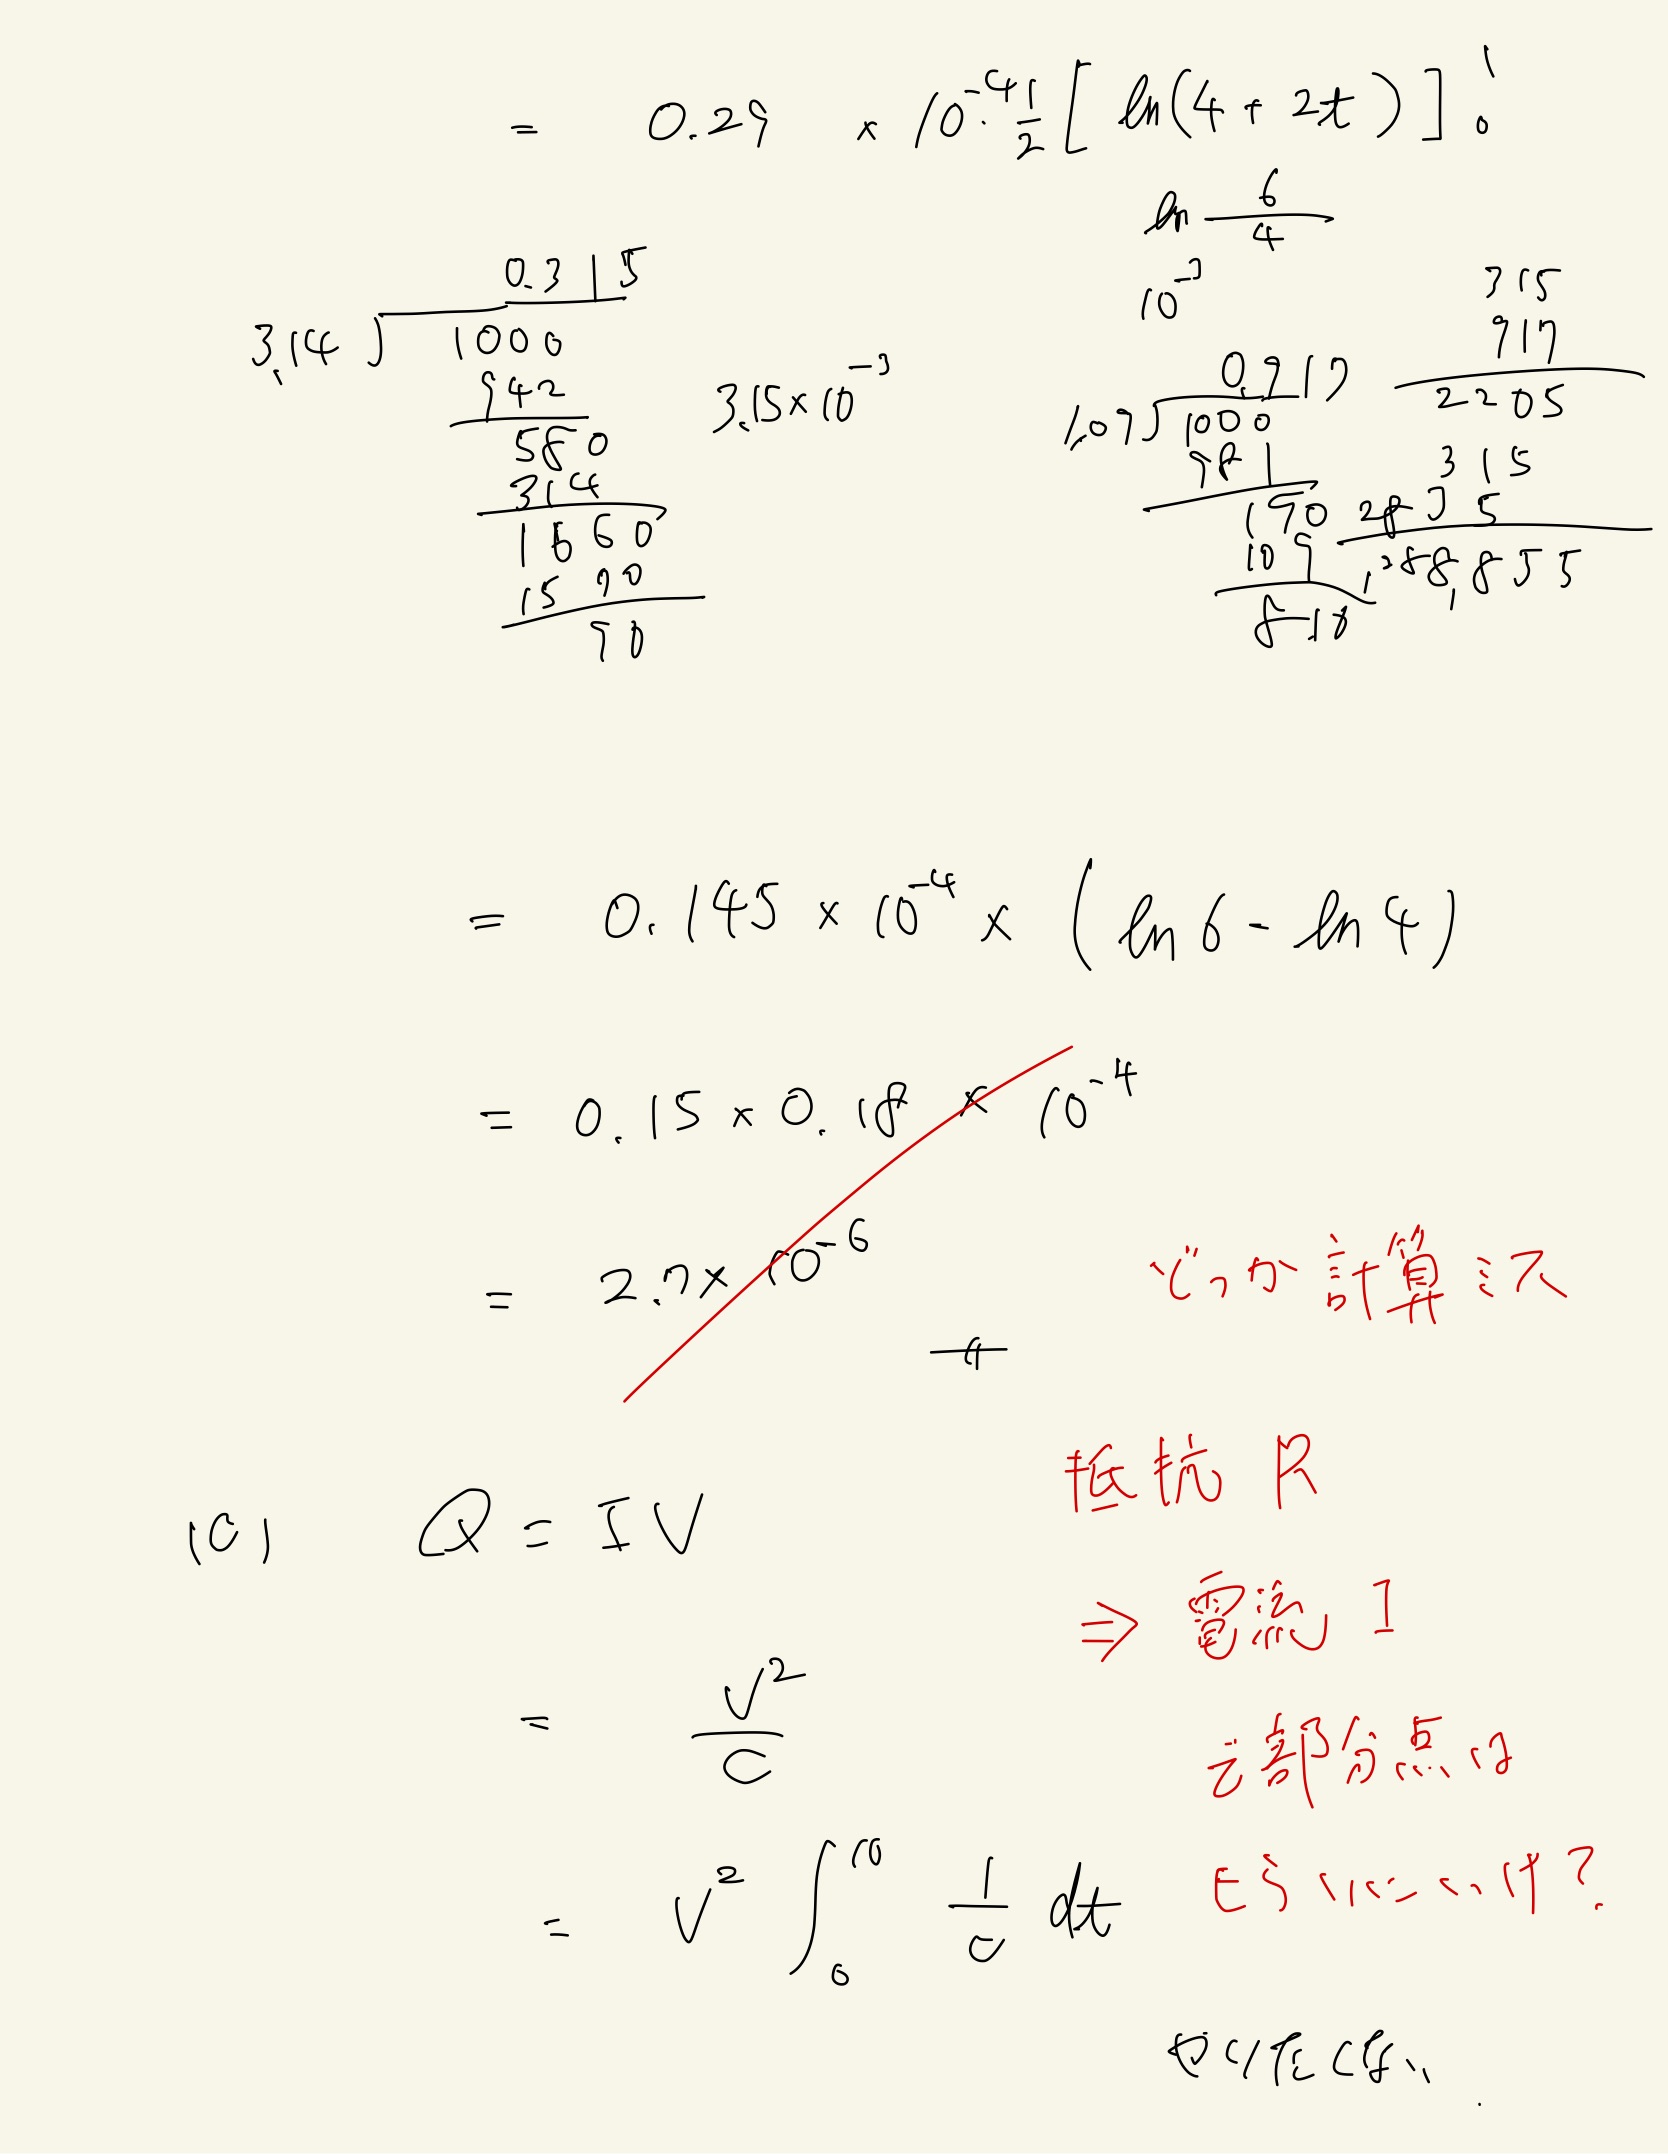 = 0.29 × 10⁻⁴ 1/2 [ ln(4 + 2t) ]₀¹
ln 6/4
10⁻³
0.315
3.14 ) 1000
942
580
314
1660
1570
90
3.15×10⁻³
0.917
1.09 ) 1000
981
190
109
810
315
917
2205
315
2835
288,855
= 0.145 × 10⁻⁴ × (ln 6 - ln 4)
= 0.15 × 0.18 × 10⁻⁴
= 2.7 × 10⁻⁶
どっか計算ミス
(C) Q = IV
= V²/C
= V² ∫₀¹⁰ 1/C dt
抵抗 R
⇒ 電流 I
で部分点は
もらいにいけ?
やりたくない